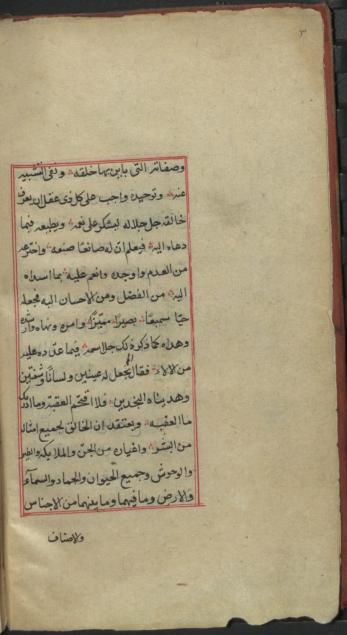 ٣
وصفاته التى باين بها خلقه ونفى التشبيه
عنه وتوحيده واجب على كل ذى عقل ان يعرف
خالقه جل جلاله ليشكر على نعمه ويطيعه فيما
دعاه اليه فيعلم ان له صانعا صنعه واخترعه
من العدم واوجده وانعم عليه بما اسداه
اليه من الفضل ومن الاحسان اليه فجعله
حيّا سميعًا بصيرا مميّزا وامره ونهاه وارشده
وهداه كما ذكر ذلك جل اسمه فيما عدّده عليه
من الالاء فقال الم نجعل له عينين ولسانًا وشفتين
وهديناه النجدين فلا اقتحم العقبة وما ادراك
ما العقبه ويعتقد ان الخالق لجميع امثاله
من البشر واغياره من الجن والملايكه والطير
والوحوش وجميع الحيوان والجماد والسمآء
والارض وما فيهما وما بينهما من الاجناس
والاصناف